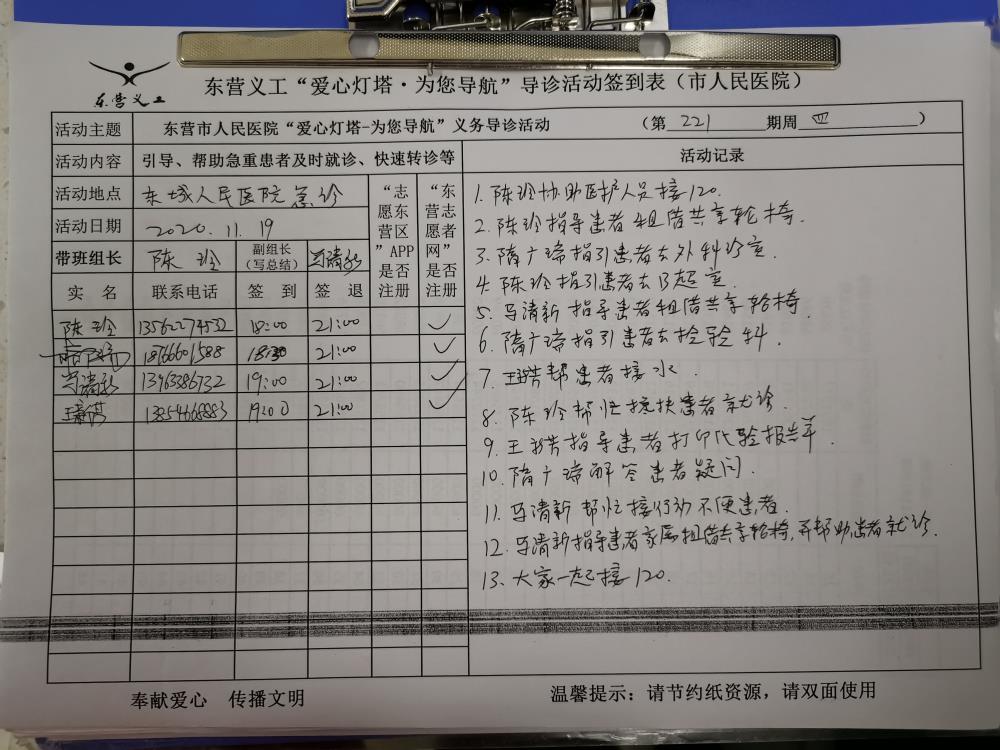 东营义工
东营义工“爱心灯塔·为您导航”导诊活动签到表（市人民医院）
活动主题 东营市人民医院“爱心灯塔-为您导航”义务导诊活动 （第 221 期周 四 ）
活动内容 引导、帮助急重患者及时就诊、快速转诊等
活动地点 东城人民医院急诊
活动日期 2020.11.19
带班组长 陈玲 副组长（写总结） 马清新
“志愿东营区”APP是否注册
“东营志愿者网”是否注册
实名 联系电话 签到 签退
陈玲 13562274532 18:00 21:00 ✓
18766601588 18:30 21:00 ✓
马清新 13963386732 19:00 21:00 ✓
13854668883 19:00 21:00 ✓
活动记录
1. 陈玲协助医护人员接120.
2. 陈玲指导患者租借共享轮椅.
3. 隋广瑞指引患者去外科诊室.
4. 陈玲指引患者去B超室.
5. 马清新指导患者租借共享轮椅.
6. 隋广瑞指引患者去检验科.
7. 帮患者接水.
8. 陈玲帮忙搀扶患者就诊.
9. 指导患者打印化验报告单.
10. 隋广瑞解答患者疑问.
11. 马清新帮忙接行动不便患者.
12. 马清新指导患者家属租借共享轮椅,并帮助患者就诊.
13. 大家一起接120.
奉献爱心 传播文明
温馨提示：请节约纸资源，请双面使用